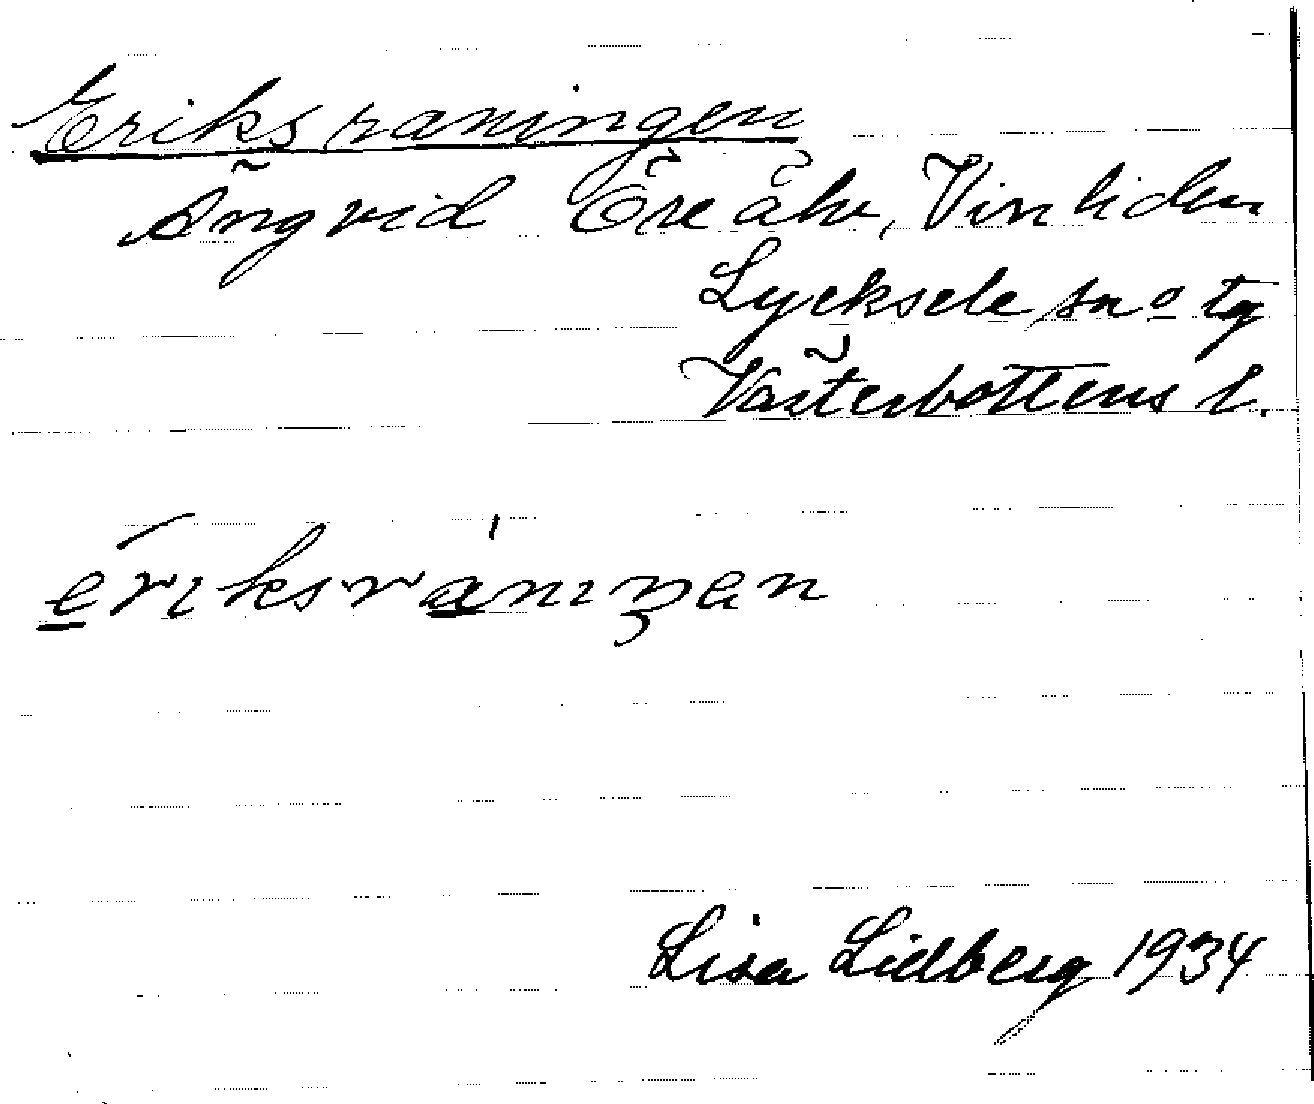 Eriksraningen
Äng vid Öre älv, Vinliden
Lycksele sn o tg
Västerbottens l.
eriksraniŋen
Lisa Lidberg 1934